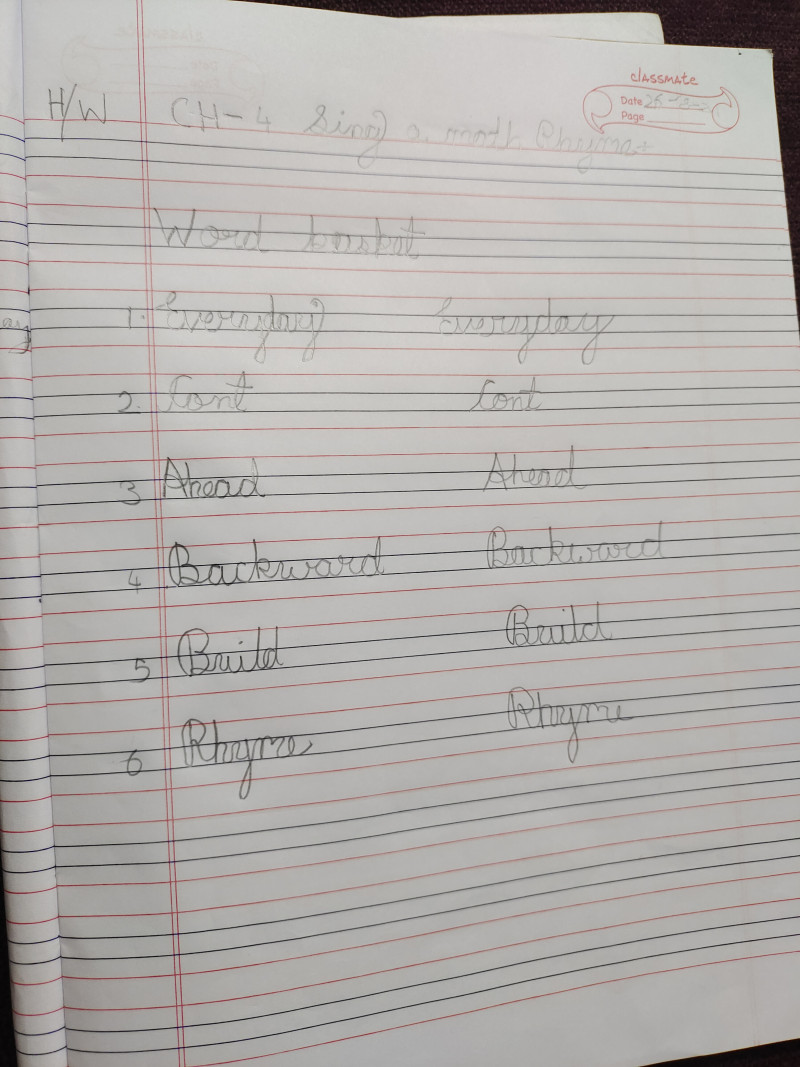 classmate
Date
Page
H/W CH-4 Sing a math Rhyme
Word basket
1. Everyday Everyday
2. Cont Cont
3 Ahead Ahead
4 Backward Backward
5 Build Build
6 Rhyme Rhyme